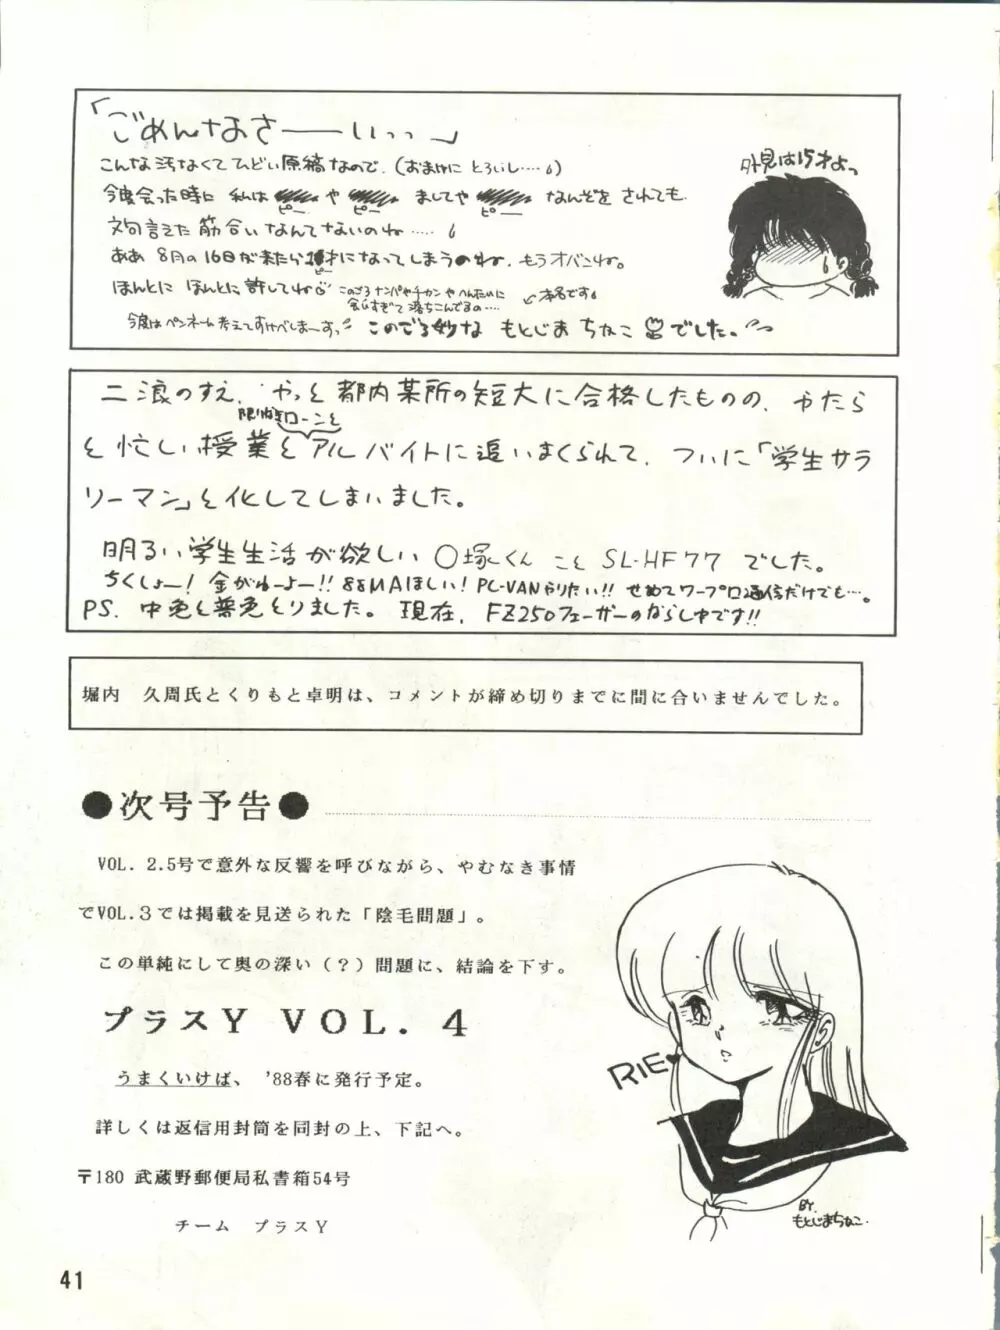 「ごめんなさ――いっっ」
こんな汚なくてひどい原稿なので.(おまけに とろいし‥‥)
外見は15才よっ
今度会った時に 私は や ましてや なんぞを されても
ピー ピー ピー
文句言えた 筋合い なんてないのね‥‥‥
ああ 8月の16日が来たら 才になってしまうのね. もうオバンね。
ピー
ほんとに ほんとに 許してね
このごろナンパやチカンやへんたいに
会いすぎて 落ちこんでるの‥‥
本名です
今度は ペンネーム 考えてすけべしまーすっ
このごろ妙な もとじま ちなこ でした。
二浪のすえ. やっと都内某所の短大に合格したものの. やたら
ローンと
と忙しい授業とアルバイトに追いまくられて. ついに「学生サラ
リーマン」と化してしまいました。
明るい学生生活が欲しい ○塚くん こと SL-HF77 でした。
ちくしょー! 金がねーよー!! 88MAほしい! PC-VANやりたい!! せめてワープロ通信だけでも…。
PS. 中免と普免とりました。 現在. FZ250フェーザーのならし中です!!
堀内 久周氏とくりもと卓明は、コメントが締め切りまでに間に合いませんでした。
●次号予告●
VOL. 2.5号で意外な反響を呼びながら、やむなき事情
でVOL.3では掲載を見送られた「陰毛問題」。
この単純にして奥の深い(?)問題に、結論を下す。
プラスY VOL. 4
うまくいけば、 '88春に発行予定。
詳しくは返信用封筒を同封の上、下記へ。
〒180 武蔵野郵便局私書箱54号
チーム プラスY
RIE♥
BY.
もとじまちなこ.
41